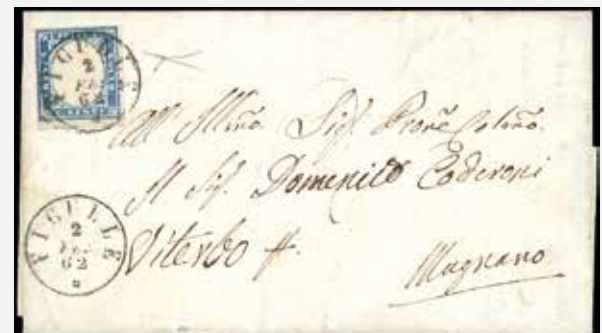 FICULLE
2
FEB
62
All' Illmo Sig. Prone Colmo
Il Sig. Domenico Coderoni
Viterbo
Mugnano
FICULLE
2
FEB
62